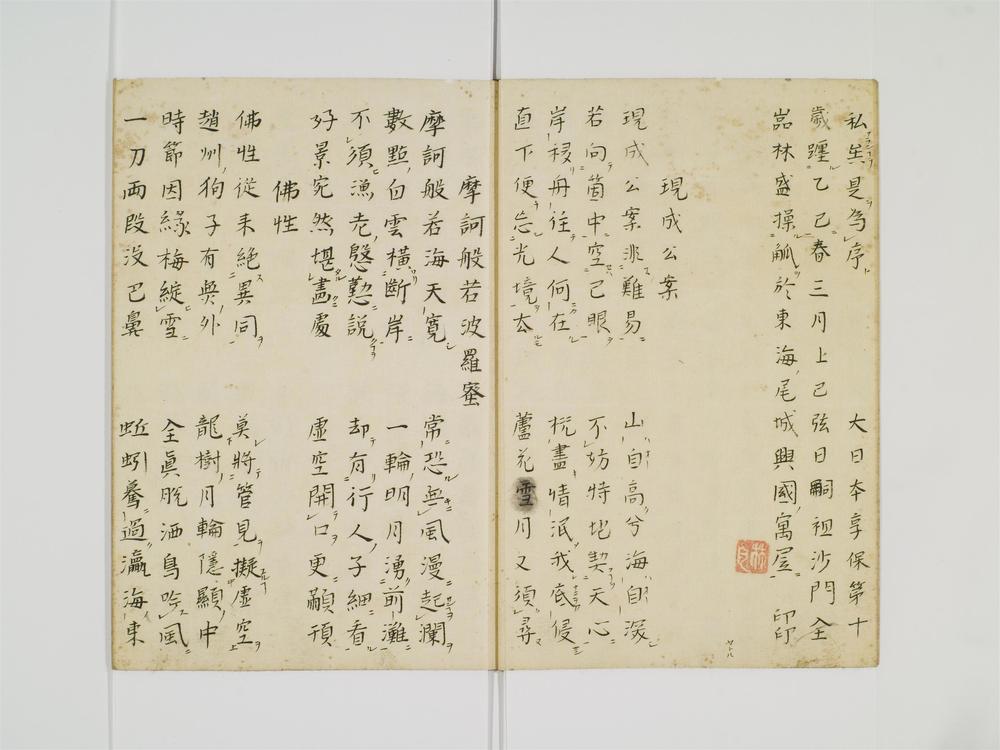 私矣是為序 大日本享保第十
歲躔乙巳春三月上巳弦日嗣祖沙門全
喦林盛操觚於東海尾城興國寓屋 印印
現成公案
現成公案非難易 山自高兮海自深
若向箇中空己眼 不妨特地契天心
岸移舟往人何在 盡情泯我底侵
直下便忘光境去 蘆花雪月又須尋
摩訶般若波羅蜜
摩訶般若海天寬 常恐無風漫起瀾
數點白雲橫斷岸 一輪明月湧前灘
不須漁老慇懃說 却有行人子細看
好景宛然堪畫處 虛空開口更顢頇
佛性
佛性從来絕異同 莫將管見擬虛空
趙州狗子有外 龍樹月輪隱顯中
時節因緣梅綻雪 全眞脫洒鳥吟風
一刀兩段沒巴鼻 蚯蚓驀過瀛海東